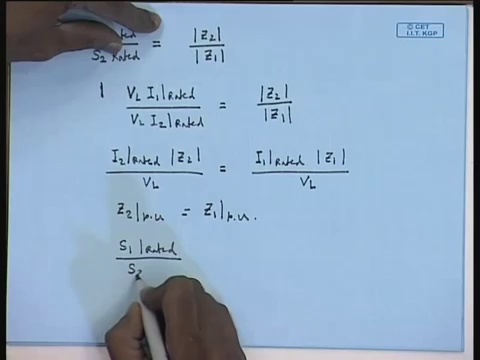 © CET
I.I.T. KGP
S2 Rated = |Z2| / |Z1|
VL I1|Rated / VL I2|Rated = |Z2| / |Z1|
I2|Rated |Z2| / VL = I1|Rated |Z1| / VL
Z2|p.u = Z1|p.u.
S1|Rated / S2